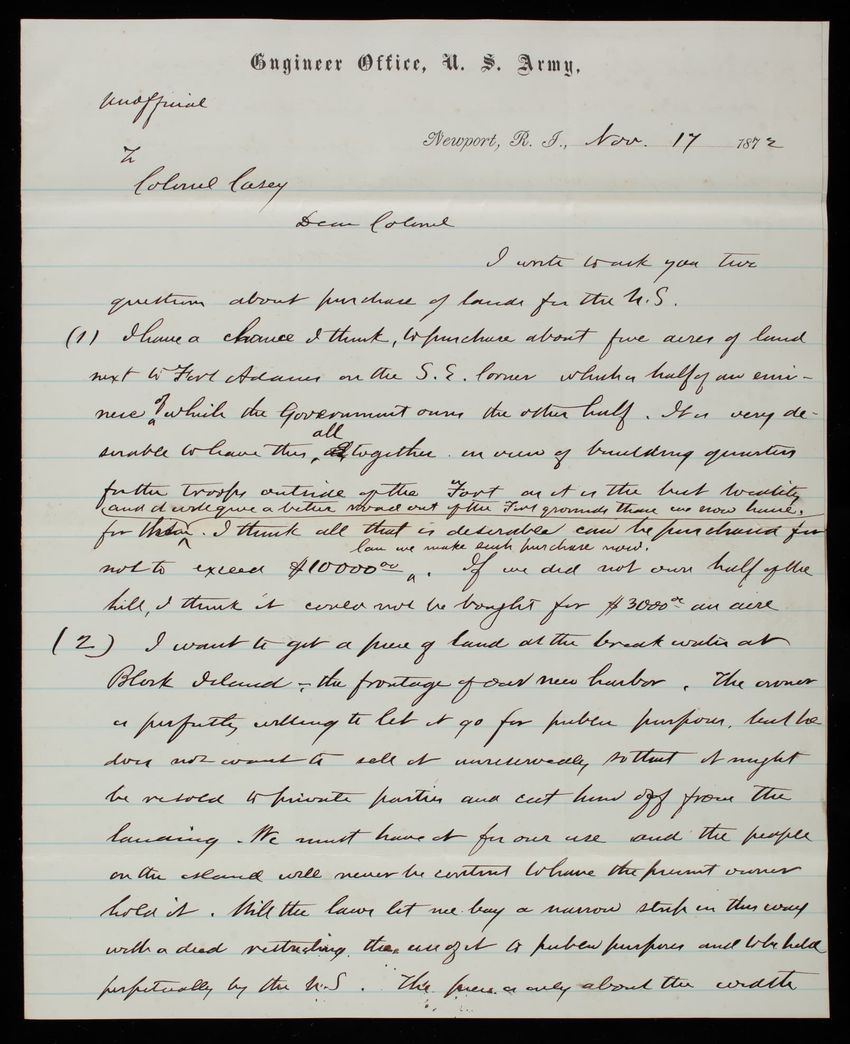 Engineer Office, U. S. Army,
Unofficial
Newport, R. I., Nov. 17 1872
To
Colonel Casey
Dear Colonel
I write to ask you two
questions about purchase of lands for the U.S.
(1) I have a chance I think, to purchase about five acres of land
next to Fort Adams on the S. E. Corner which is half of an emi-
nence of which the Government owns the other half. It is very de-
sirable to have this all together in view of building quarters
for the troops outside of the Fort as it is the best locality
and it will give a better road out of the Fort grounds than we now have.
for them. I think all that is desirable can be purchased for
Can we make such purchase now.
not to exceed $10000 00. If we did not own half of the
hill, I think it could not be bought for $3000 00 an acre
(2) I want to get a piece of land at the breakwater at
Block Island - the frontage of our new harbor. The owner
is perfectly willing to let it go for public purposes, but he
does not want to sell it unreservedly so that it might
be resold to private parties and cut him off from the
landing. We must have it for our use and the people
on the island will never be content to have the present owner
hold it. Will the laws let me buy a narrow strip in this way
with a deed restricting the use of it to public purposes and to be held
perpetually by the U.S. The piece is only about the width